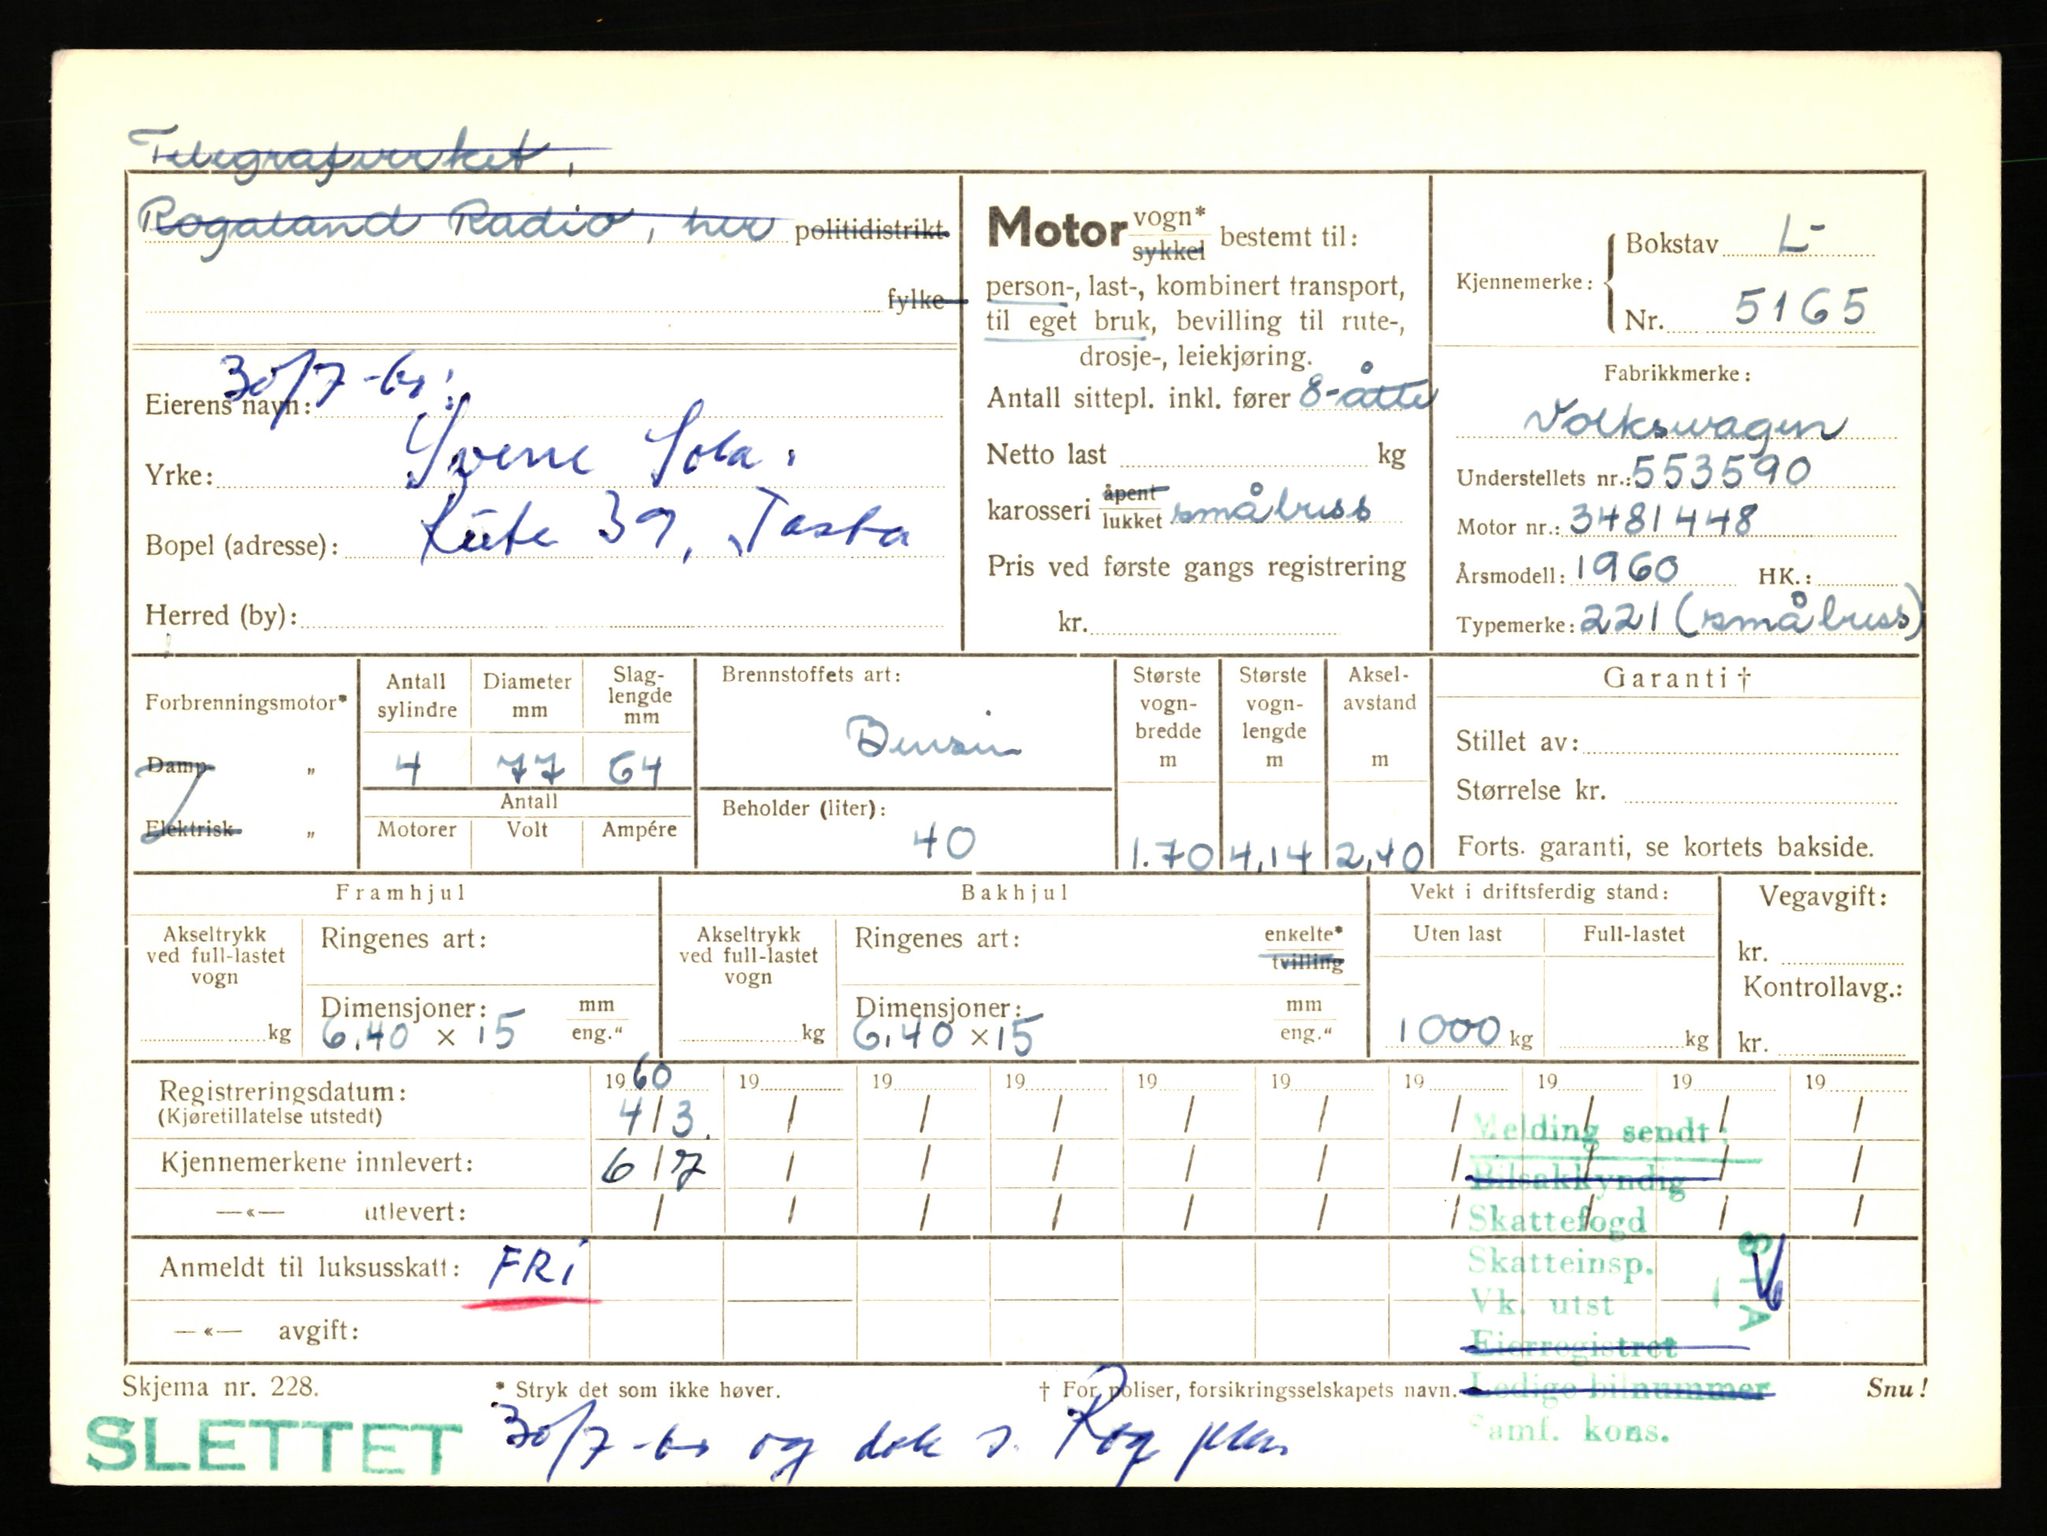 Telegrafverket,
Rogaland Radio, her politidistrikt
fylke
Eierens navn: 30/7-60:
Yrke: Sverre Sola.
Bopel (adresse): 39, Tasta
Herred (by):
Motor vogn* sykkel bestemt til:
person-, last-, kombinert transport,
til eget bruk, bevilling til rute-,
drosje-, leiekjøring.
Antall sittepl. inkl. fører 8-åtte
Netto last kg
karosseri åpent lukket småbuss
Pris ved første gangs registrering
kr.
Kjennemerke: Bokstav L-
Nr. 5165
Fabrikkmerke:
Volkswagen
Understellets nr.: 553590
Motor nr.: 3481448
Årsmodell: 1960 HK.:
Typemerke: 221 (småbuss)
Forbrenningsmotor*
Damp "
Elektrisk "
Antall sylindre Diameter mm Slag-lengde mm
4 77 64
Antall
Motorer Volt Ampére
Brennstoffets art:
Bensin
Beholder (liter):
40
Største vogn-bredde m Største vogn-lengde m Aksel-avstand m
1.70 4,14 2,40
Garanti †
Stillet av:
Størrelse kr.
Forts. garanti, se kortets bakside.
Framhjul
Akseltrykk ved full-lastet vogn
kg
Ringenes art:
Dimensjoner: mm eng."
6.40 x 15
Bakhjul
Akseltrykk ved full-lastet vogn
kg
Ringenes art: enkelte* tvilling
Dimensjoner: mm eng."
6.40 x 15
Vekt i driftsferdig stand:
Uten last Full-lastet
1000 kg kg
Vegavgift:
kr.
Kontrollavg.:
kr.
Registreringsdatum: 1960 19 19 19 19 19 19 19 19 19
(Kjøretillatelse utstedt) 4/3. / / / / / / / / /
Kjennemerkene innlevert: 6/7 / / / / / / / / /
—«— utlevert: / / / / / / / / / /
Anmeldt til luksusskatt: FRI
—«— avgift:
Melding sendt:
Bilsakkyndig
Skattefogd
Skatteinsp.
Vk. utst
Eierregistret
Ledige bilnummer
Samf. kons.
Skjema nr. 228. * Stryk det som ikke høver. † For poliser, forsikringsselskapets navn. Snu!
SLETTET 30/7-60 og dok s.